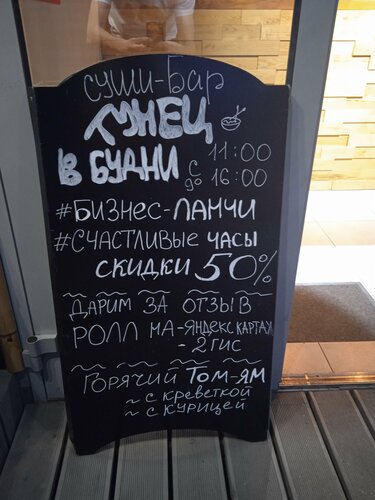 СУШИ-БАР
ТУНЕЦ
В БУДНИ С 11:00
ДО 16:00
#БИЗНЕС-ЛАНЧИ
#СЧАСТЛИВЫЕ ЧАСЫ
СКИДКИ 50%
ДАРИМ ЗА ОТЗЫВ
РОЛЛ НА-ЯНДЕКС КАРТАХ
- 2ГИС
ГОРЯЧИЙ ТОМ-ЯМ
~ С КРЕВЕТКОЙ
~ С КУРИЦЕЙ